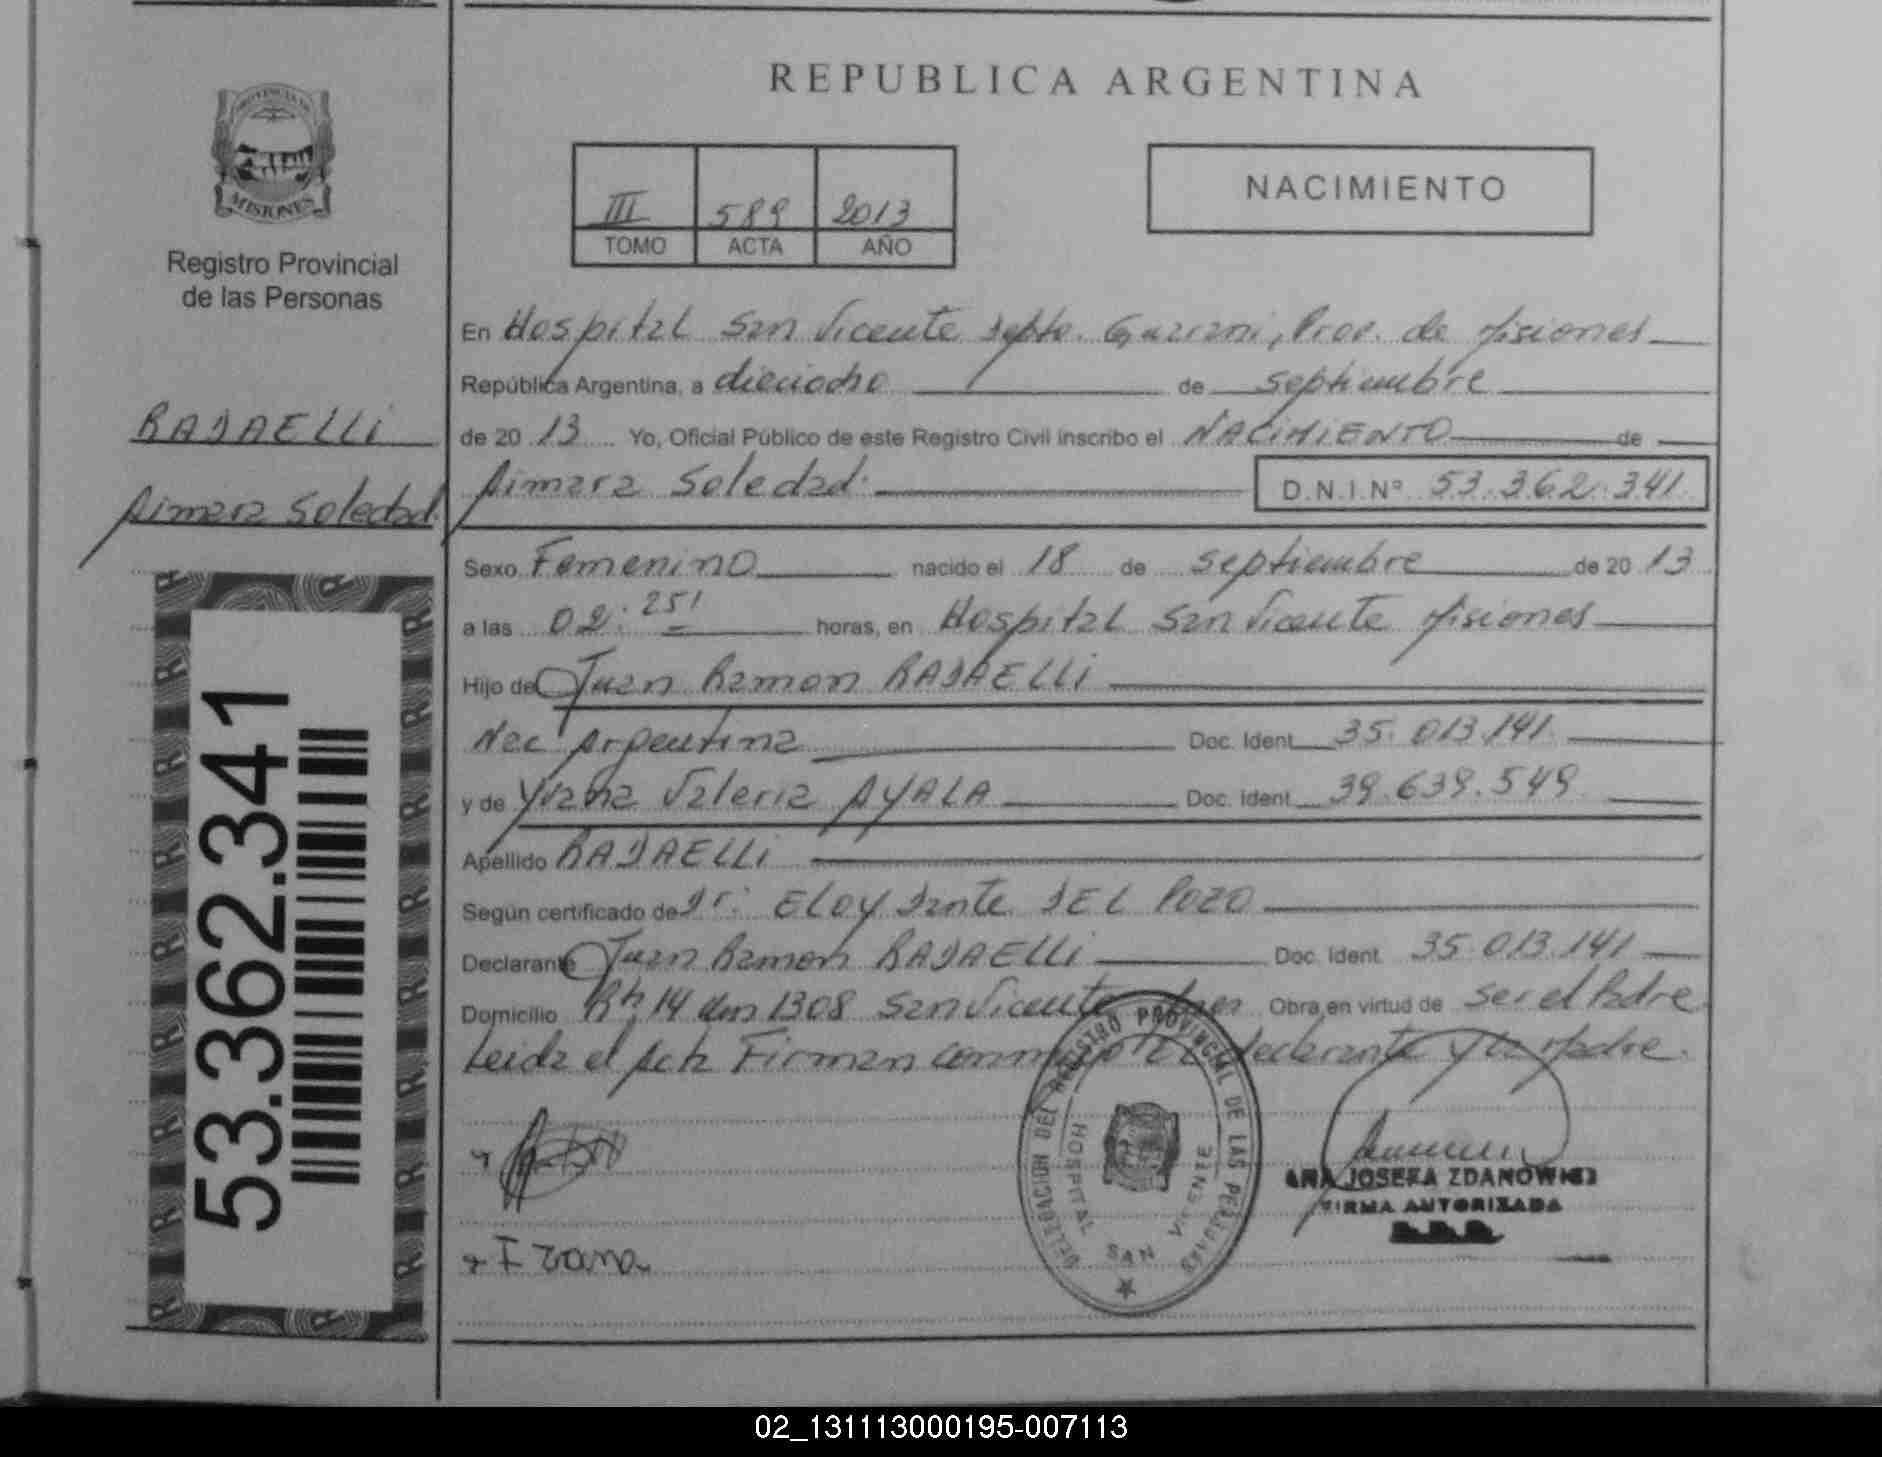 REPUBLICA ARGENTINA
PROVINCIA DE
MISIONES
Registro Provincial
de las Personas
III 589 2013
TOMO ACTA AÑO
NACIMIENTO
En Hospital San Vicente Depto. Guarani, Prov. de Misiones
República Argentina, a dieciocho de septiembre
de 2013 Yo, Oficial Público de este Registro Civil inscribo el NACIMIENTO de
Aimara Soledad. D.N.I. Nº 53.362.341
RADAELLI
Aimara Soledad.
Sexo Femenino nacido el 18 de septiembre de 2013
a las 02:25' horas, en Hospital San Vicente Misiones
Hijo de Juan Ramon RADAELLI
Nac Argentina Doc. Ident. 35.013.141
y de Yvana Valeria AYALA Doc. Ident. 39.639.549
Apellido RADAELLI
Según certificado de Dr. ELOY Dante DEL POZO
Declarante Juan Ramon RADAELLI Doc. Ident. 35.013.141
Domicilio Rta 14 km 1308 San Vicente Obra en virtud de ser el Padre
Leida el Acta Firman conmigo el declarante y la Madre.
53.362.341
DELEGACION DEL REGISTRO PROVINCIAL DE LAS PERSONAS
HOSPITAL SAN VICENTE
ANA JOSEFA ZDANOWICZ
FIRMA AUTORIZADA
Ivana
02_131113000195-007113